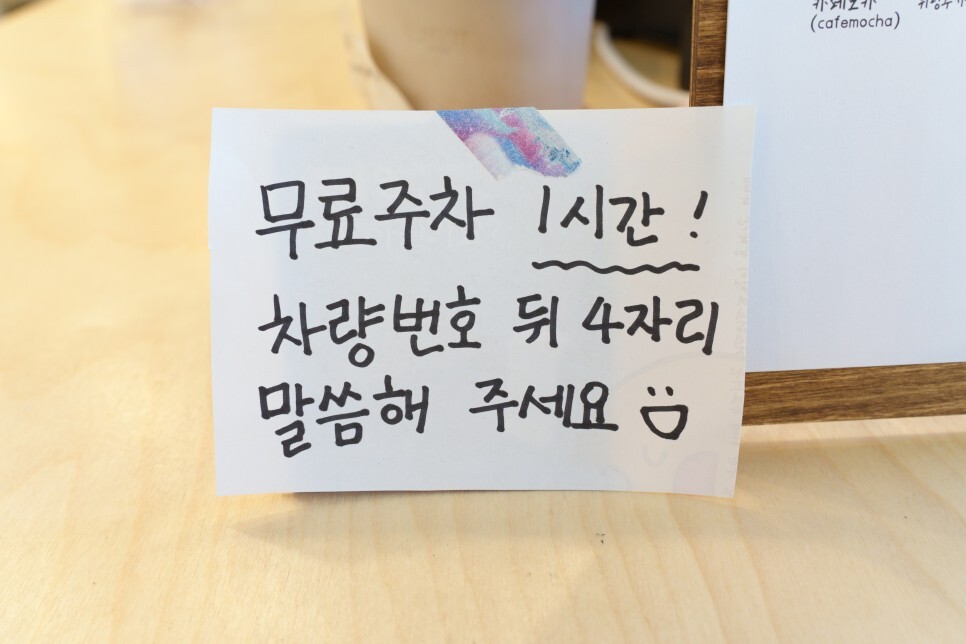 카페모카
(cafemocha)
무료주차 1시간!
차량번호 뒤 4자리
말씀해 주세요